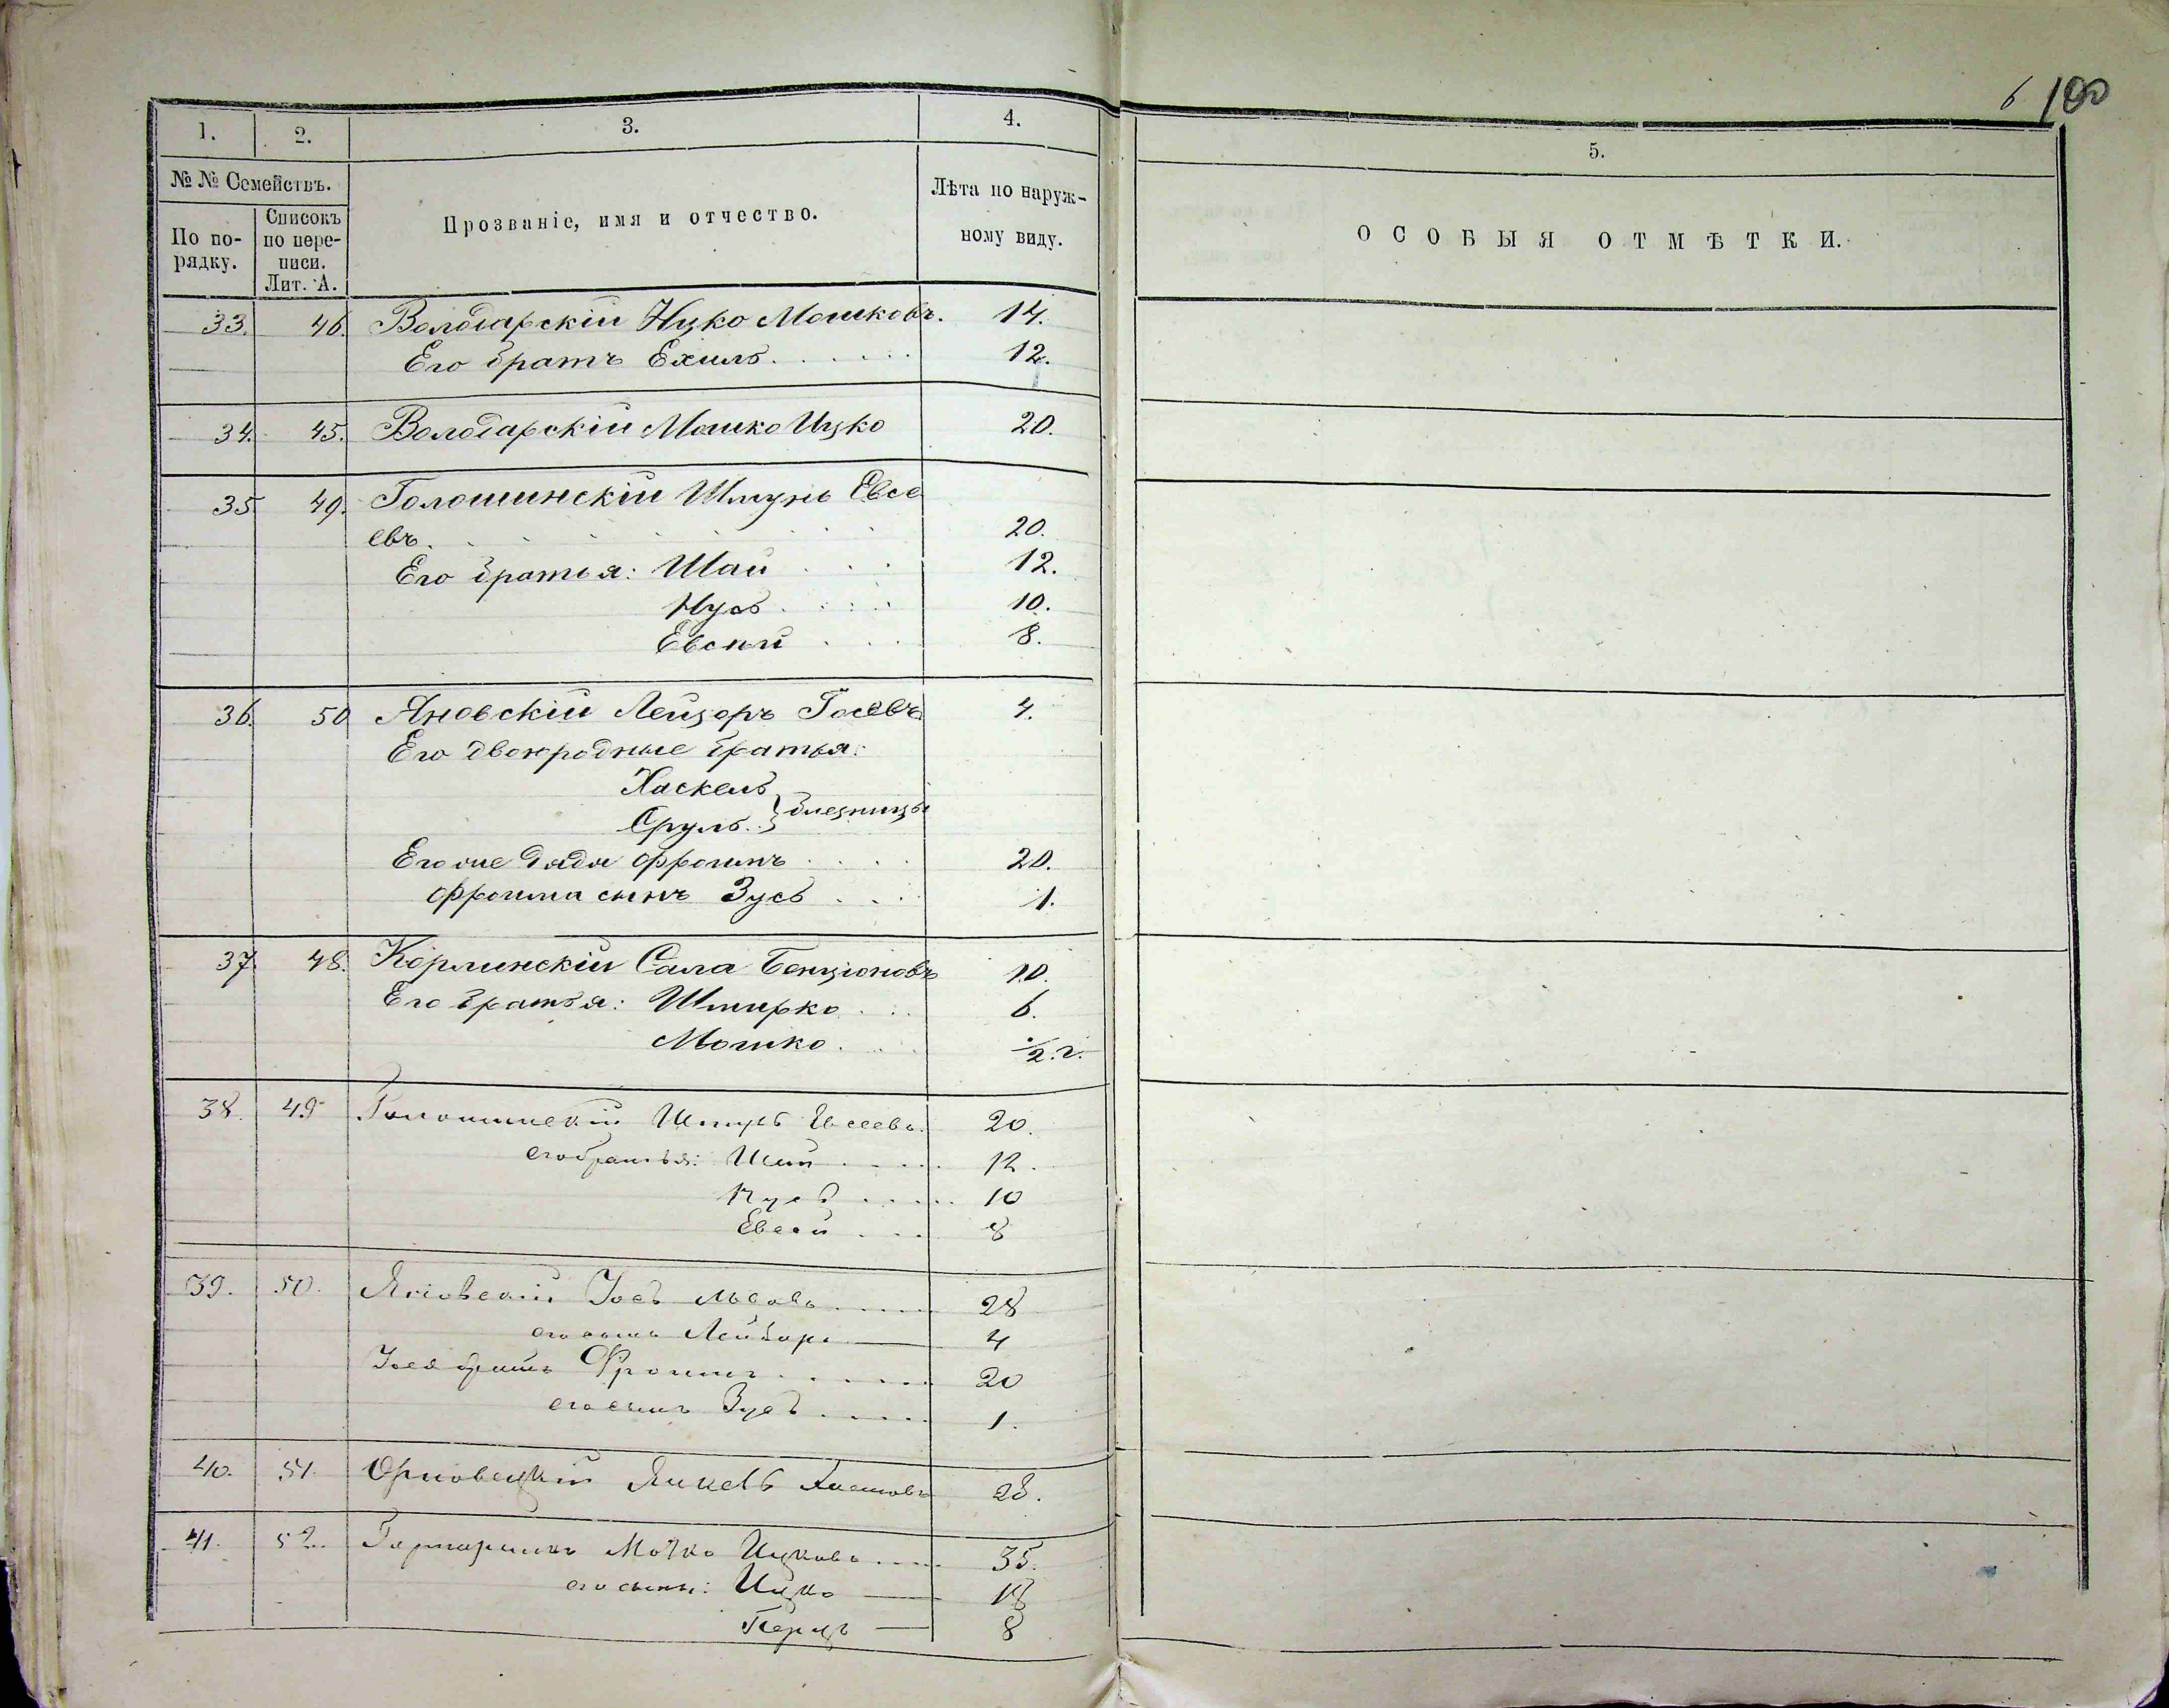 6 100
1. 2. 3. 4. 5.
№ № Семействъ.
По по-
рядку.
Списокъ
по пере-
писи.
Лит. А.
Прозваніе, имя и отчество.
Лѣта по наруж-
ному виду.
ОСОБЫЯ ОТМѢТКИ.
33. 46. Володарскій Ицко Мошковъ. 14.
Его братъ Ехиль. 12.
34. 45. Володарскій Мошко Ицко 20.
35 49. Голошинскій Шмуль Евсе
евъ. 20.
Его братья: Шай 12.
Нусь 10.
Евсей 8.
36. 50 Яновскій Лейзеръ Іосевъ 4.
Его двоюродные братья:
Хаскель
Сруль } близницы
Его же дядя Фроимъ 20.
Фроима сынъ Зусь 1.
37. 48. Корлинскій Сала Бенціоновъ 10.
Его братья: Шмерко 6.
Мошко. 1/2. г.
38. 49 Голошинскій Шмуль Евсеевъ. 20.
его братья: Шай 12.
Нусь 10
Евсей 8
39. 50. Яновскій Іось 28
его сынъ Лейзеръ 4
Іося братъ Фроимъ 20
его сынъ Зусь 1.
40. 51. Янкель 28.
41. 52. Мошко Ицковъ 35.
его сыны: Ицко 18
Перецъ 8